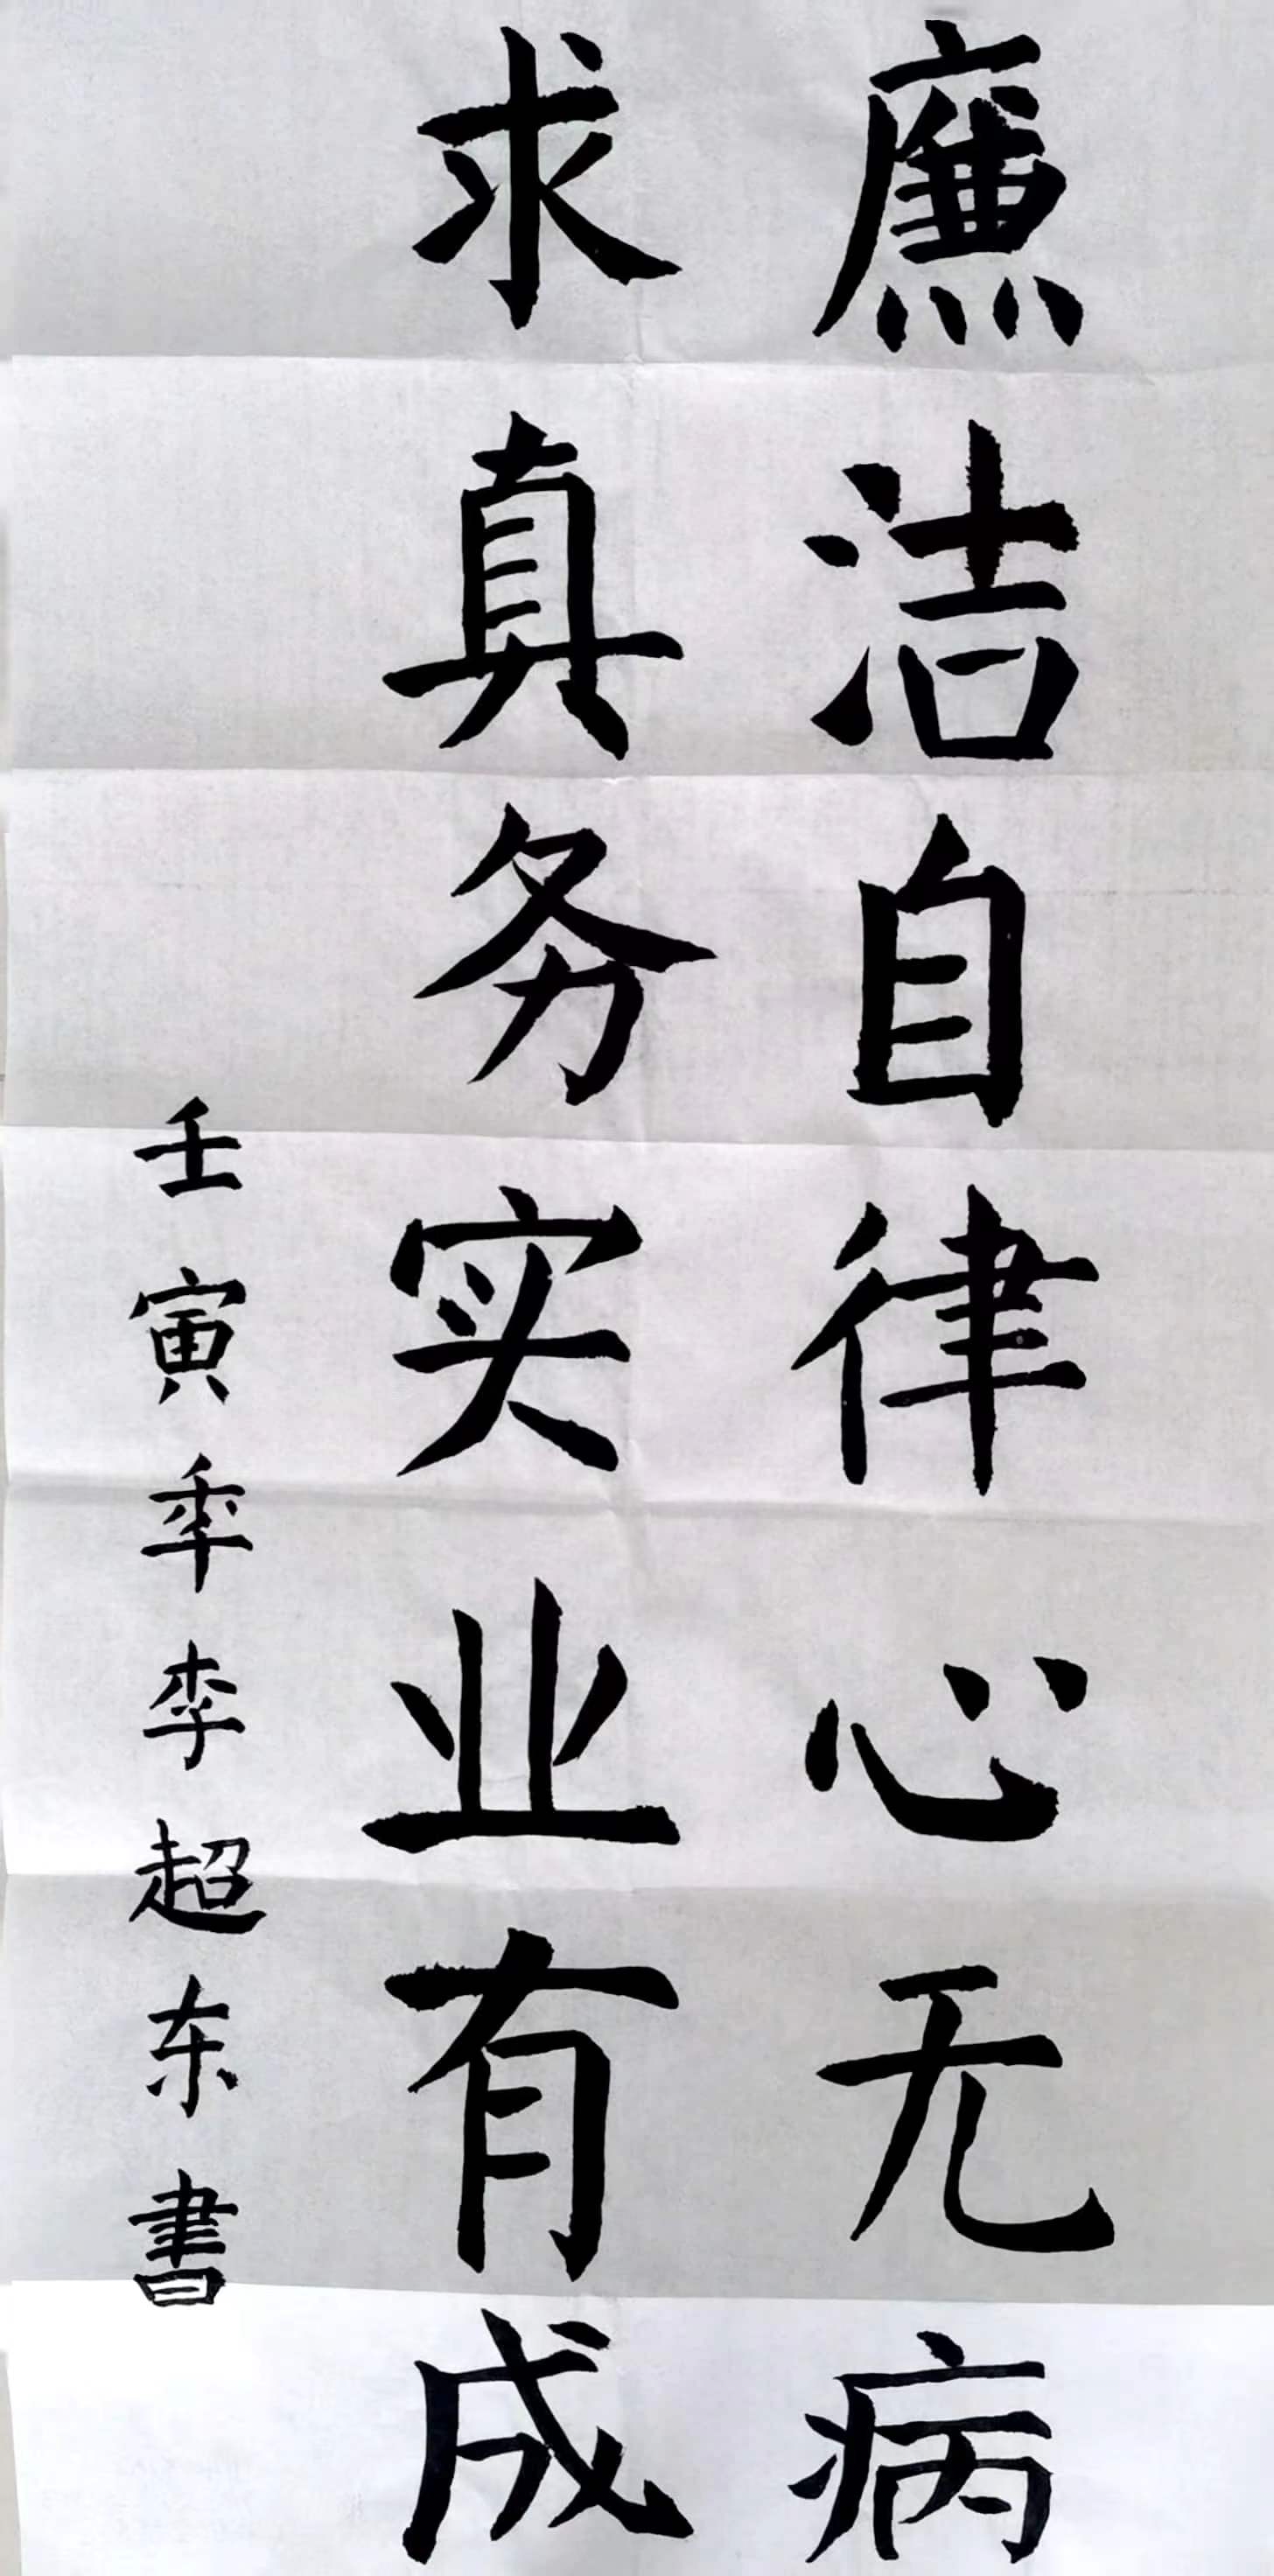 廉洁自律心无病
求真务实业有成
壬寅年李超东書